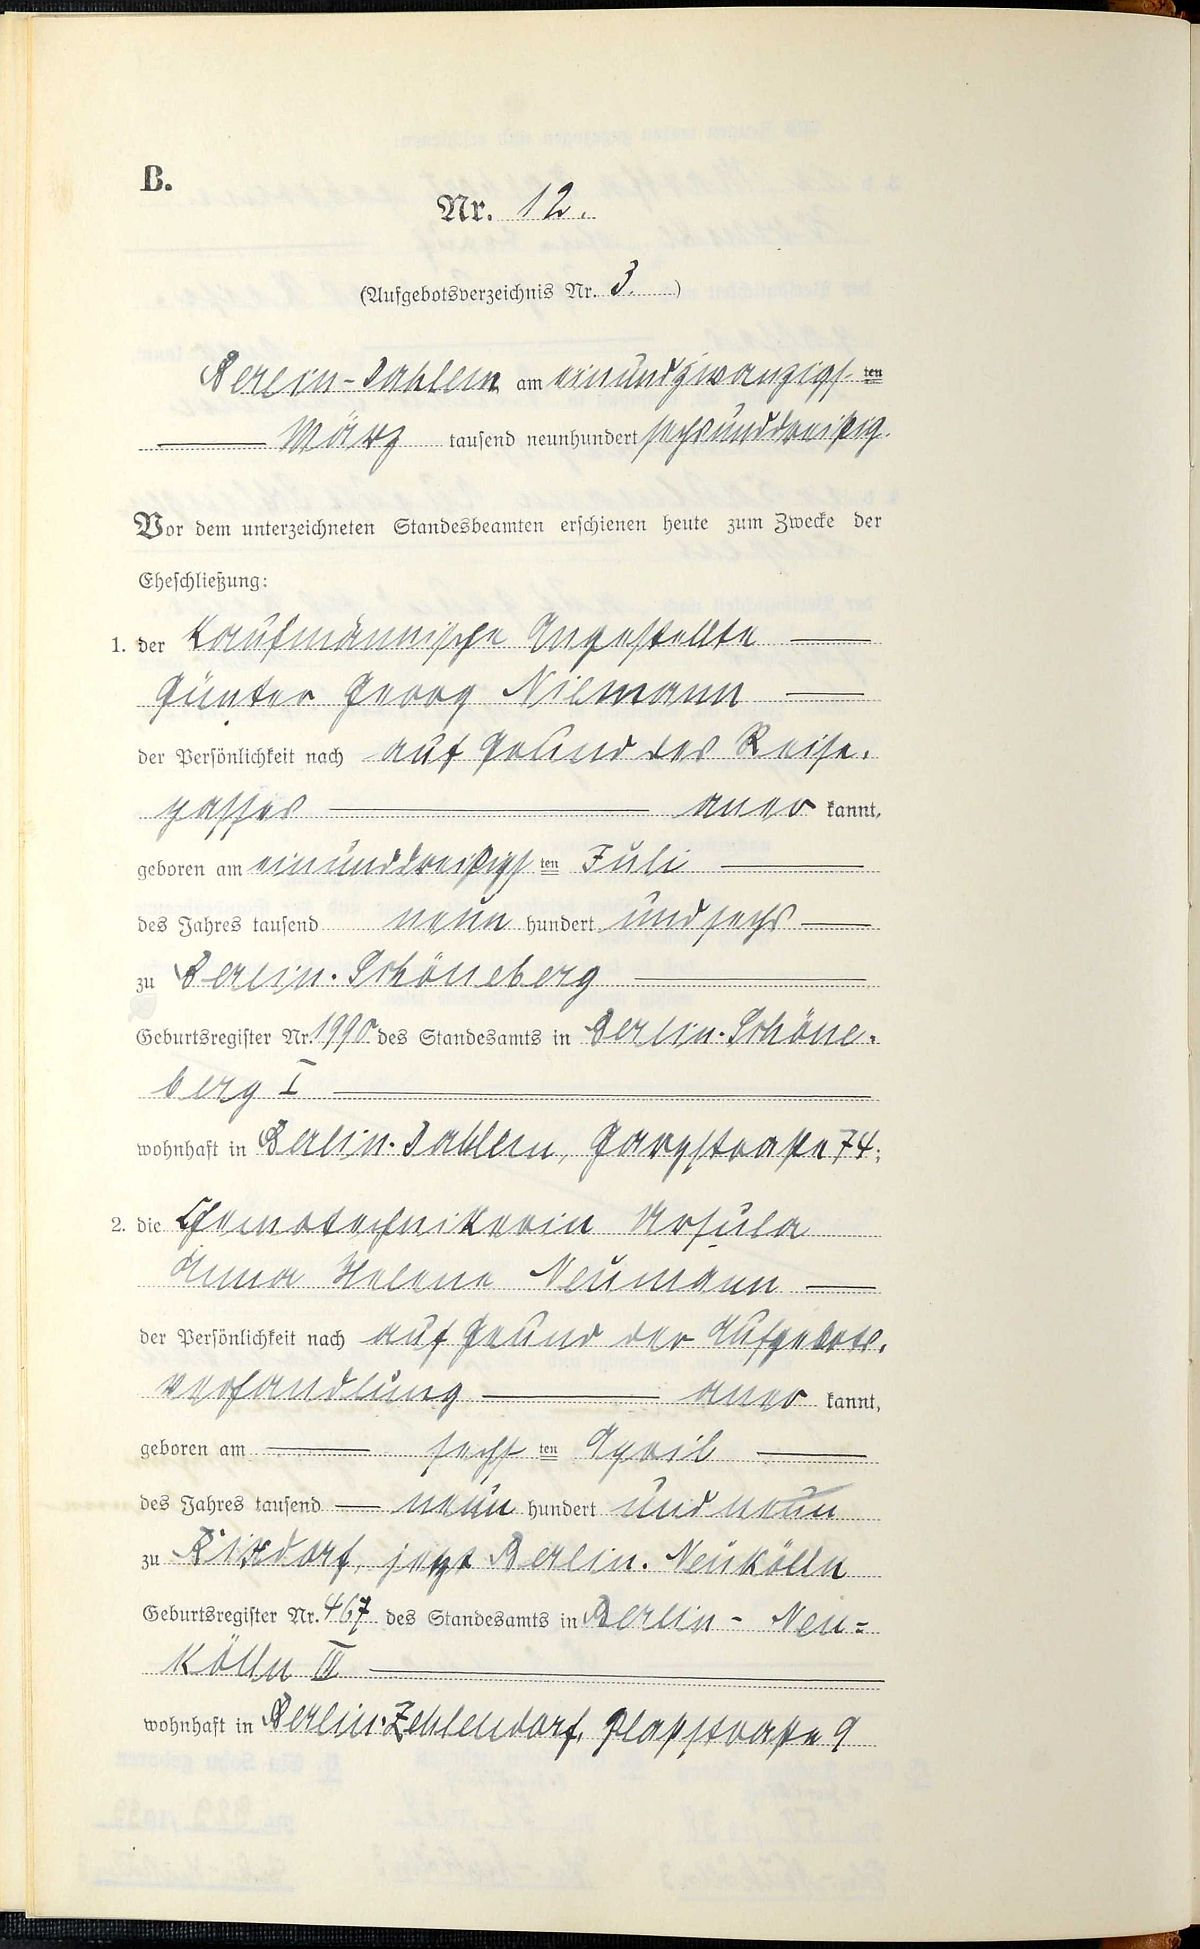 B.
Nr. 12.
(Aufgebotsverzeichnis Nr. 3.)
Berlin-Dahlem am einundzwanzigsten
März tausend neunhundert sechsunddreißig.
Vor dem unterzeichneten Standesbeamten erschienen heute zum Zwecke der
Eheschließung:
1. der kaufmännische Angestellte
Günter Georg Niemann
der Persönlichkeit nach auf Grund des Reise-
passes aner kannt,
geboren am einunddreißigsten Juli
des Jahres tausend neun hundert und sechs
zu Berlin-Schöneberg
Geburtsregister Nr. 1990 des Standesamts in Berlin-Schöne-
berg I
wohnhaft in Berlin-Dahlem, Garystraße 74;
2. die Chemotechnikerin Ursula
Anna Helene Neumann
der Persönlichkeit nach auf Grund der Aufgebots-
verhandlung aner kannt,
geboren am sechsten April
des Jahres tausend neun hundert und neun
zu Rixdorf, jetzt Berlin-Neukölln
Geburtsregister Nr. 467 des Standesamts in Berlin-Neu=
kölln III
wohnhaft in Berlin-Zehlendorf, straße 9